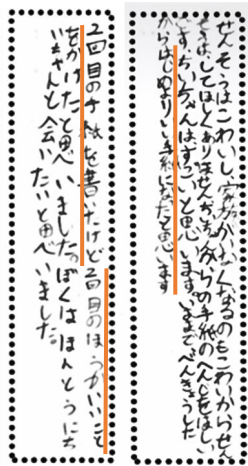 せんそうはこわいし、家族がいなくなるのもこわいからせん
そうはしてほしくありません。ちいちゃんからの手紙のへんじをほしい
です。ちいちゃんはすごいと思います。いままでべんきょうした
からはじめよりいい手紙になったと思います
2回目の手紙を書いたけど2回目のほうがいいこと
をかけたと思いました。ぼくはほんとうにち
いちゃんと会いたいと思いました。